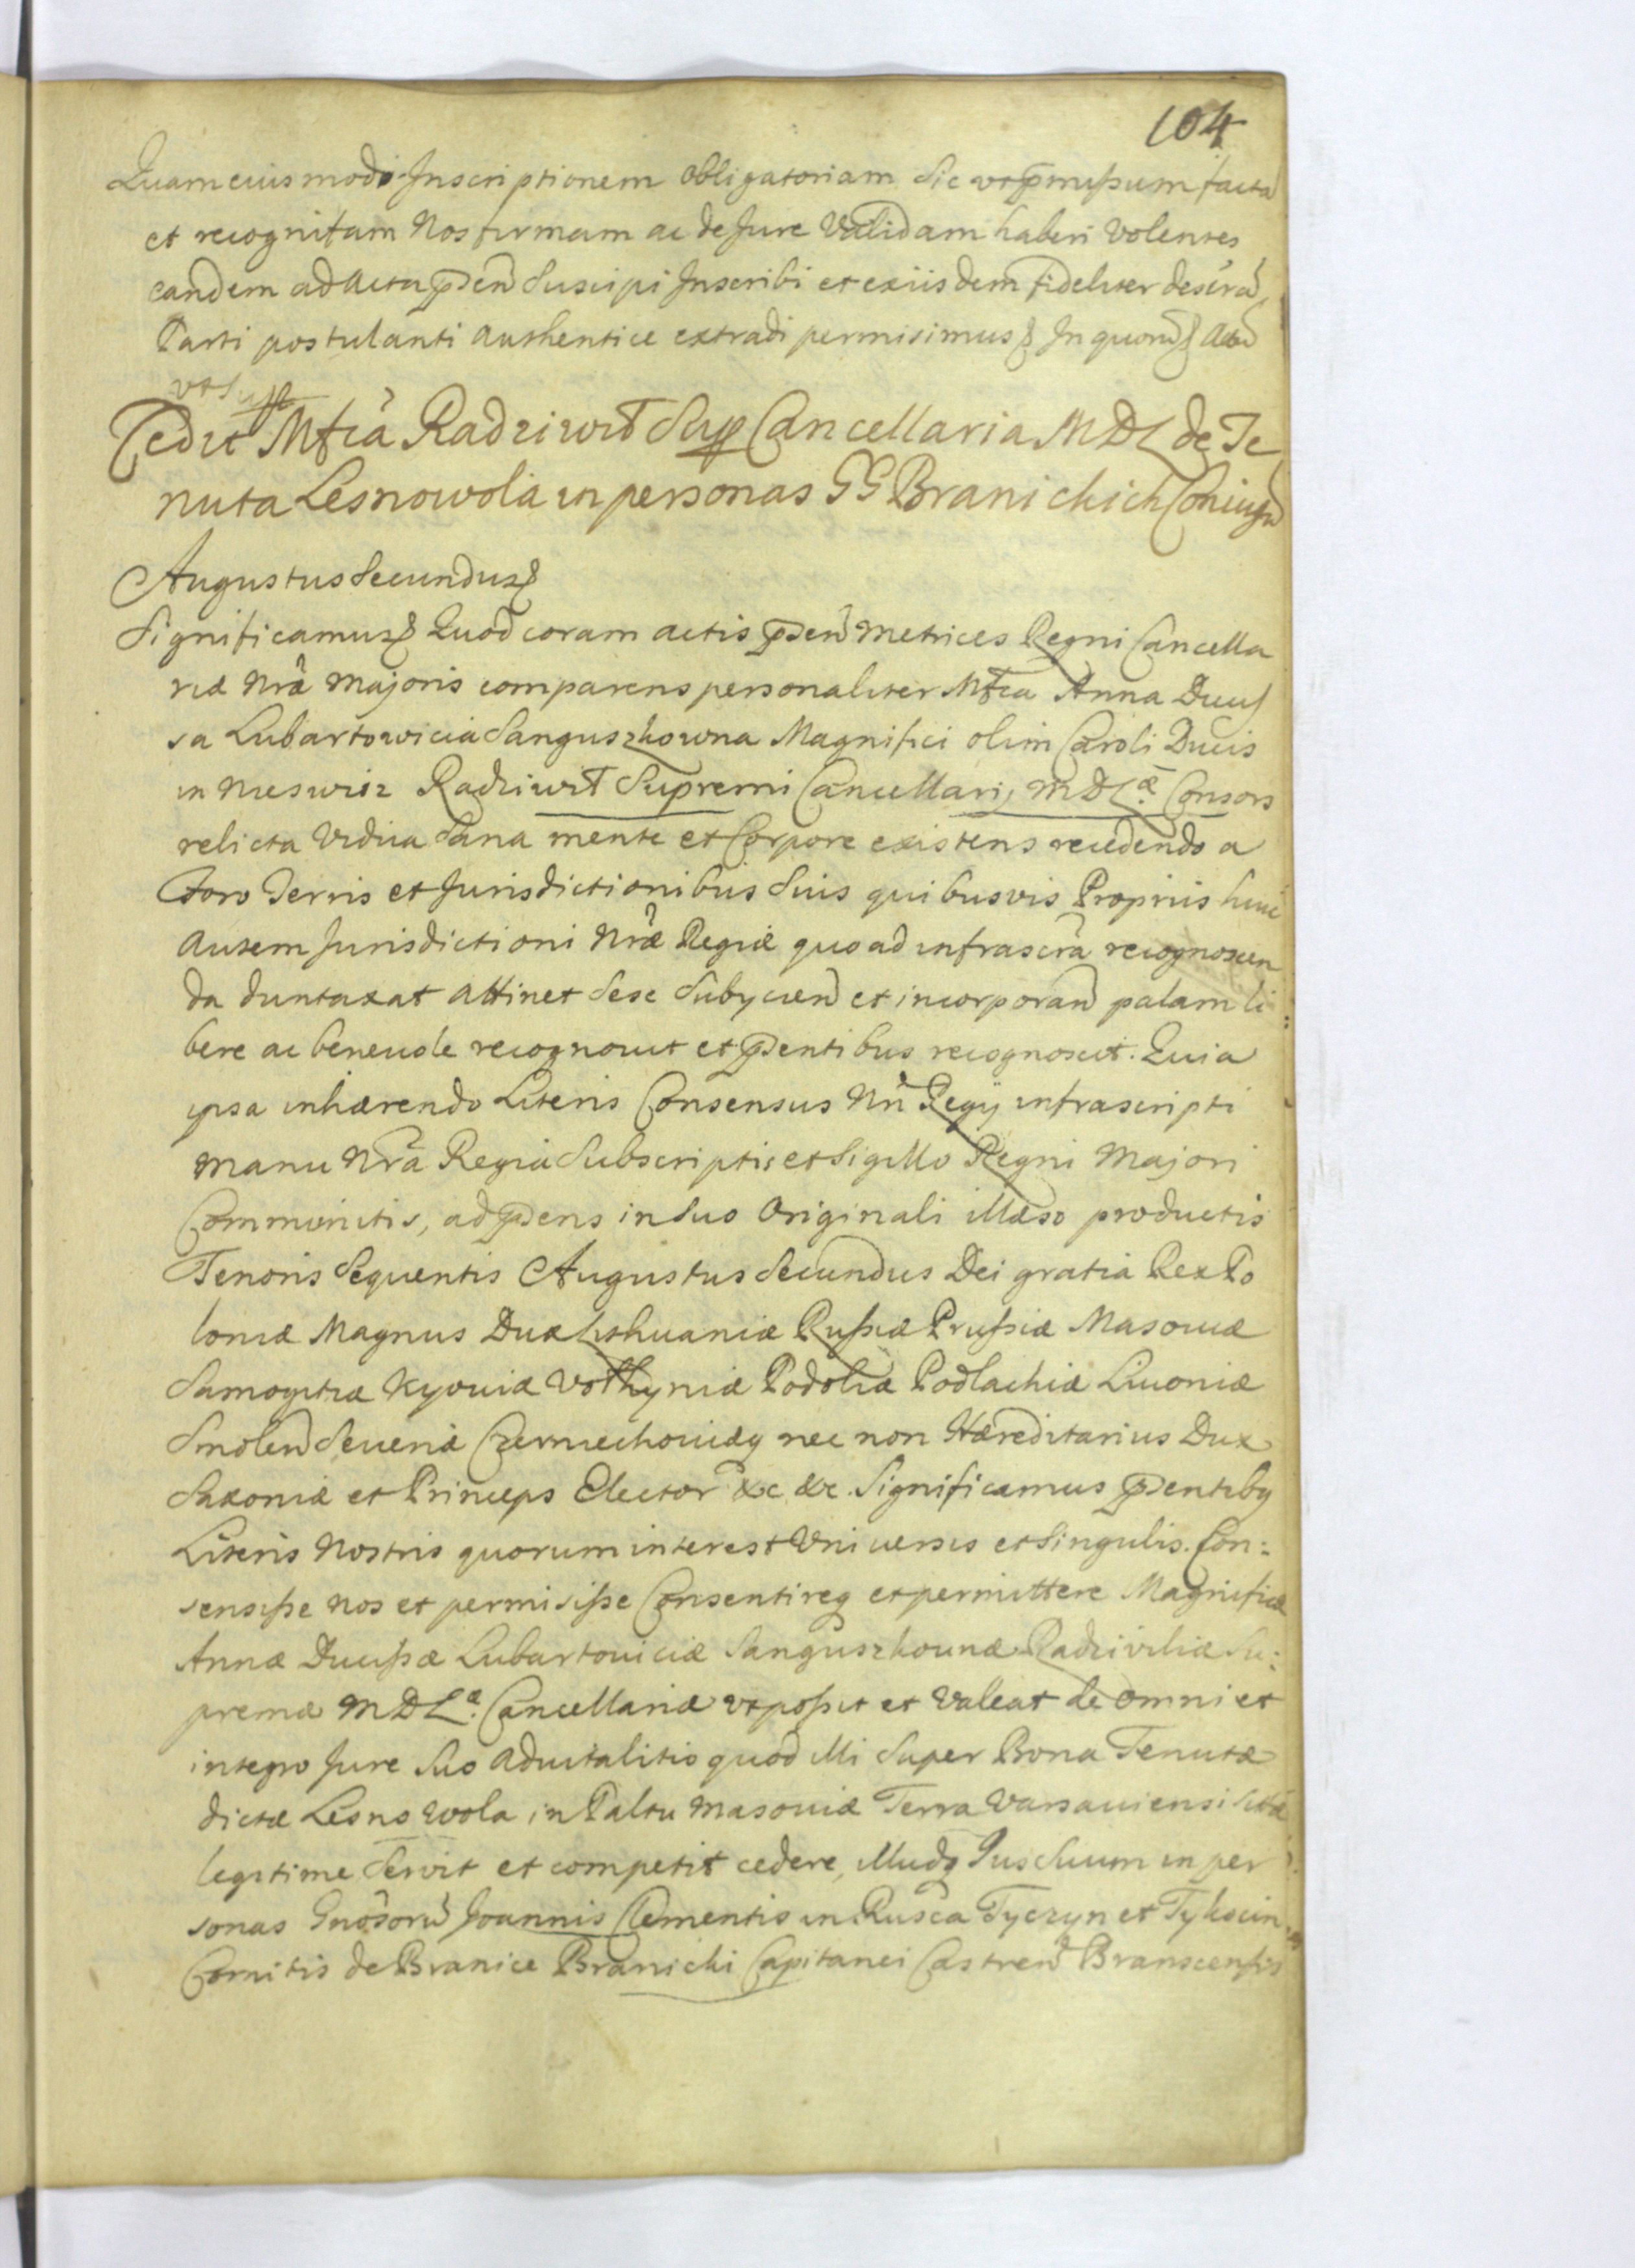 104
Quam eius modi Inscriptionem obligatoriam sic vt p̃missum facta
et recognitam Nos firmam ac de Jure Validam haberi Volentes
eandem ad Acta p̃sen Suscipi Inscribi et ex iisdem fideliter descrã
Parti postulanti Authentice extradi permisimus In quorũ Actũ
vt supr
Cedit Mfcã Radziwił Sup Cancellaria MDL de Te
nuta Lesnowola in personas GG Branickich Coniugũ
Augustus Secundus
Significamus Quod coram actis p̃sen Metrices Regni Cancella
riæ Nrã Majoris comparens personaliter Mfca Anna Ducis
sa Lubartowicia Sanguszkowna Magnifici olim Caroli Ducis
in Nieswiz Radziwił Supremi Cancellarij MDLæ. Consors
relicta Vidua Sana mente et Corpore existens recedendo a
Foro Terris et Jurisdictionibus Suis quibusvis Propriis huic
Autem Jurisdictioni Nræ Regiæ quoad infrascrã recognoscen
da duntaxat attinet Sese Subÿcien et incorporan palam li
bere ac beneuole recognouit et p̃sentibus recognoscit. Quia
ipsa inhærendo Literis Consensus Nri Regÿ infrascripti
Manu Nrã Regia Subscriptis et Sigillo Regni Majori
Communitis, ad p̃sens in Suo Originali illæso productis
Tenoris Sequentis Augustus Secundus Dei gratia Rex Po
loniæ Magnus Dux Lithuaniæ Russiæ Prussiæ Masouiæ
Samogitiæ Kyouiæ Volhyniæ Podoliæ Podlachiæ Liuoniæ
Smolen Seueriæ Czerniechouiæq nec non Hæreditarius Dux
Saxoniæ et Princeps Elector &c &c. Significamus p̃sentibq
Literis Nostris quorum interest Vniuersis et Singulis. Con:
sensisse Nos et permisisse Consentireq et permittere Magnificæ
Annæ Ducissæ Lubartouiciæ Sanguszkounæ Radziviliæ Su:
premæ MDLæ. Cancellariæ vt possit et Valeat de omni et
integro Jure Suo Aduitalitio quod illi Super Bona Tenutæ
dictæ Lesno Wola in Paltu Masouiæ Terra Varsauiensi Sitæ
legitime Servit et competit cedere, illudq Jus Suum in per
sonas Gnosorũ Joannis Clementis in Rusca Tyczyn et Tykocin
Comitis de Branice Branicki Capitanei Castren Branscensis